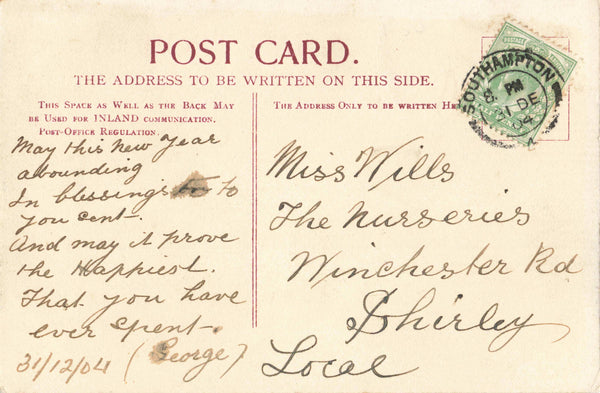 POST CARD.
THE ADDRESS TO BE WRITTEN ON THIS SIDE.
THIS SPACE AS WELL AS THE BACK MAY
BE USED FOR INLAND COMMUNICATION.
POST-OFFICE REGULATION.
May this New Year
abounding
In blessings to
you sent.
And may it prove
the Happiest.
That you have
ever spent.
31/12/04 (George)
THE ADDRESS ONLY TO BE WRITTEN HE
Miss Wills
The Nurseries
Winchester Rd
Shirley
Local
SOUTHAMPTON
PM
31 DE
04
POSTAGE